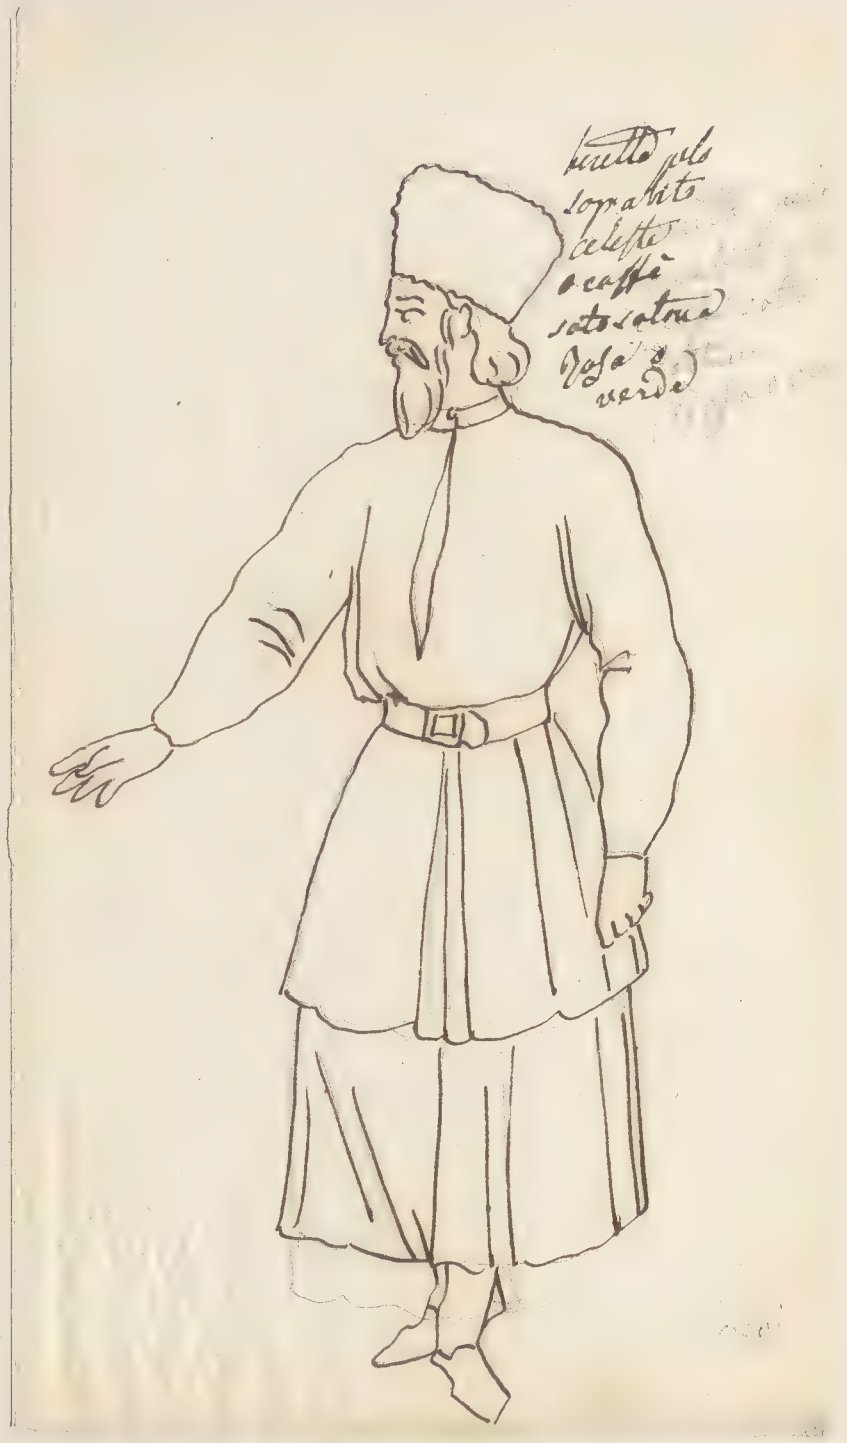 beretto pelo
soprabito
celeste
o caffè
soto sotana
Rosa o
verde